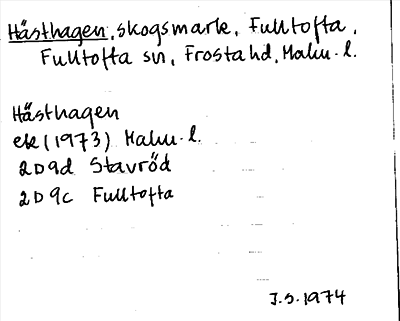 Hästhagen, skogsmark, Fulltofta,
Fulltofta sn, Frosta hd, Malm. l.
Hästhagen
ek (1973) Malm. l.
2D9d Stavröd
2D9c Fulltofta
J.S. 1974